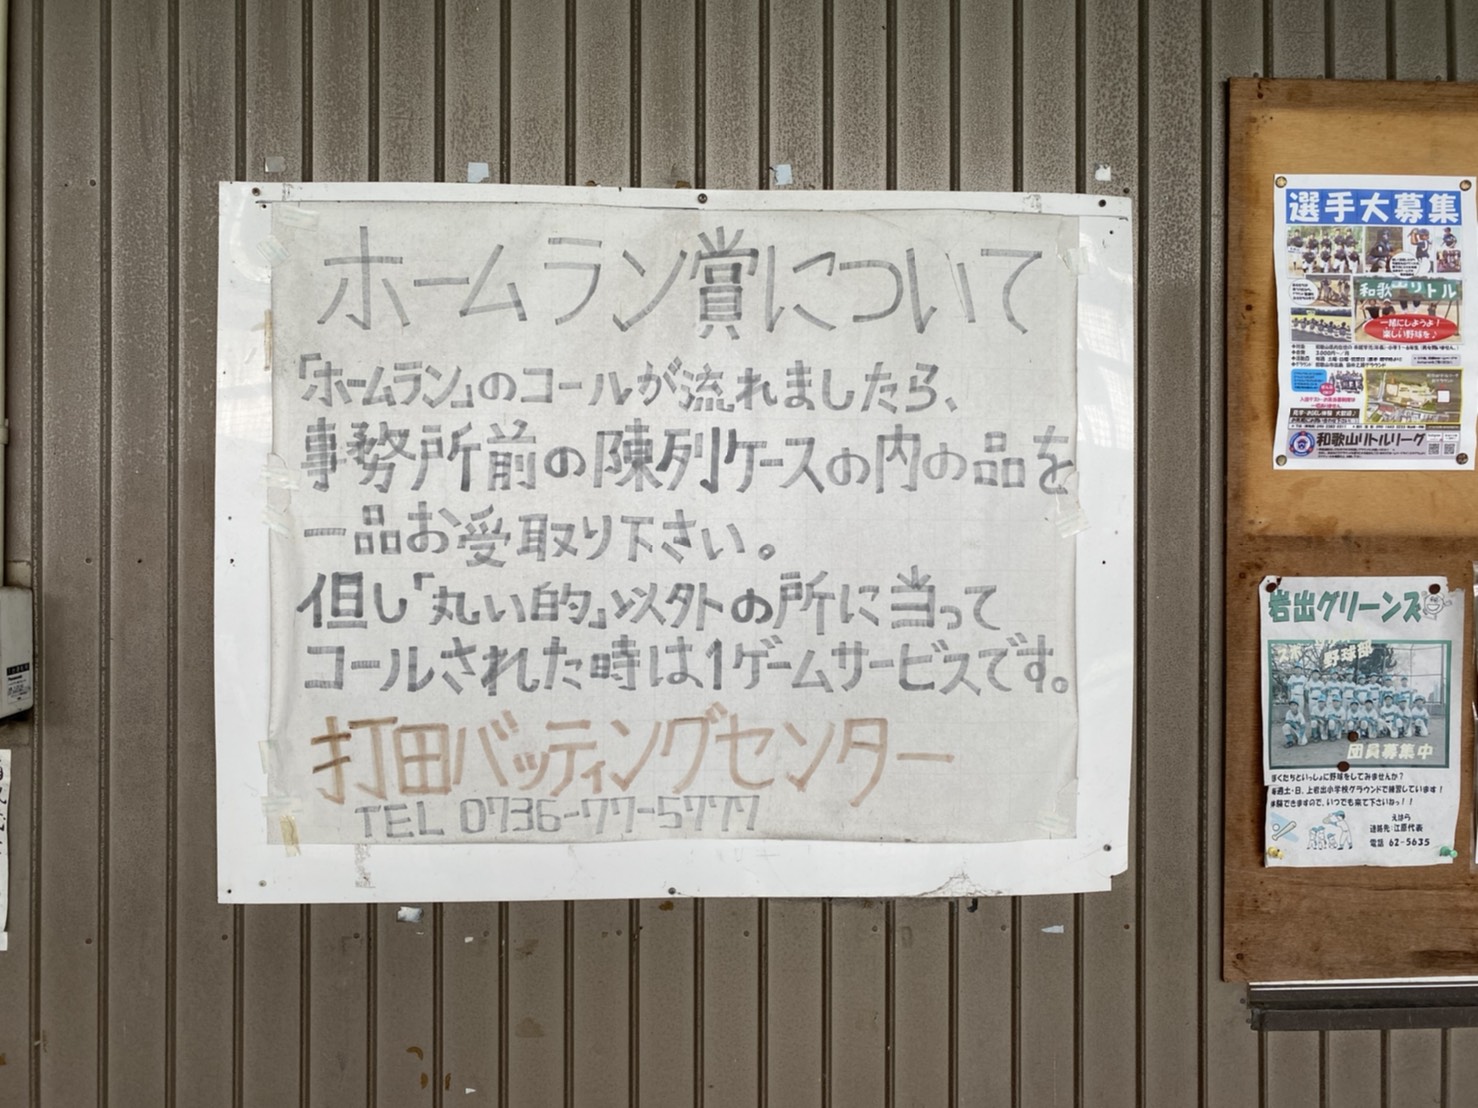 ホームラン賞について
「ホームラン」のコールが流れましたら、
事務所前の陳列ケースの内の品を
一品お受取り下さい。
但し「丸い的」以外の所に当って
コールされた時は1ゲームサービスです。
打田バッティングセンター
TEL 0736-77-5777
選手大募集
和歌山リトル
一緒にしようよ!
楽しい野球を♪
和歌山リトルリーグ
岩出グリーンズ
野球部
団員募集中
ぼくたちといっしょに野球をしてみませんか?
毎週土・日、上岩出小学校グラウンドで練習しています!
体験できますので、いつでも来て下さいねっ!!
えはら
連絡先 江原代表
電話 62-5635